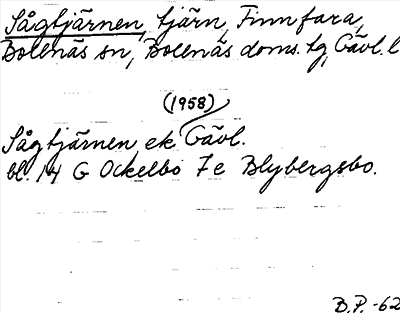 Sågtjärnen, tjärn, Finnfara,
Bollnäs sn, Bollnäs doms. tg, Gävl. l
(1958)
Sågtjärnen ek Gävl.
bl. 14 G Ockelbo 7 e Blybergsbo.
B.P. -62